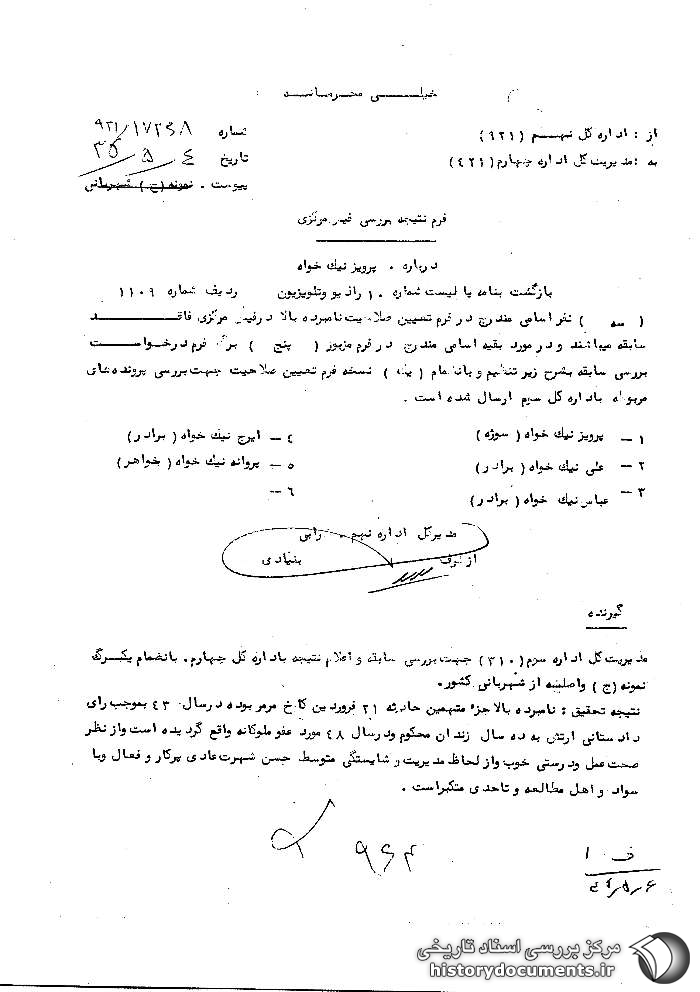 خیلی محرمانه
از : اداره کل نهم (۹۲۱)
شماره ۹۲۱/۱۷۲۳۸
به : مدیریت کل اداره چهارم (۴۲۱)
تاریخ ۳۵/۵/۴
پیوست . نمونه (ج) شهربانی
فرم نتیجه بررسی فیش مرکزی
درباره . پرویز نیک خواه
بازگشت بنامه یا لیست شماره ۱۰ رادیو وتلویزیون ردیف شماره ۱۱۰۹
( سه ) نفر اسامی مندرج در فرم تعیین صلاحیت نامبرده بالا در فیش مرکزی فاقد
سابقه میباشند و در مورد بقیه اسامی مندرج در فرم مزبور ( پنج ) برگ فرم درخواست
بررسی سابقه بشرح زیر تنظیم و بانضمام ( یک ) نسخه فرم تعیین صلاحیت جهت بررسی پرونده های
مربوطه باداره کل سوم ارسال شده است .
۱ – پرویز نیک خواه ( سوژه )
۴ – ایرج نیک خواه ( برادر )
۲ – علی نیک خواه ( برادر )
۵ – پروانه نیک خواه ( خواهر )
۳ – عباس نیک خواه ( برادر )
۶ –
مدیرکل اداره نهم .
از طرف بنیادی
گیرنده
مدیریت کل اداره سوم (۳۱۰) جهت بررسی سابقه و اعلام نتیجه باداره کل چهارم . بانضمام یکبرگ
نمونه (ج) واصله از شهربانی کشور.
نتیجه تحقیق : نامبرده بالا جزء متهمین حادثه ۲۱ فروردین کاخ مرمر بوده در سال ۴۳ بموجب رای
دادستانی ارتش به ده سال زندان محکوم ودر سال ۴۸ مورد عفو ملوکانه واقع گردیده است واز نظر
صحت عمل ودرستی خوب واز لحاظ مدیریت و شایستگی متوسط حسن شهرت عادی پرکار و فعال وبا
سواد و اهل مطالعه و تاحدی متکبر است .
ف ۱
مرکز بررسی اسناد تاریخی
historydocuments.ir